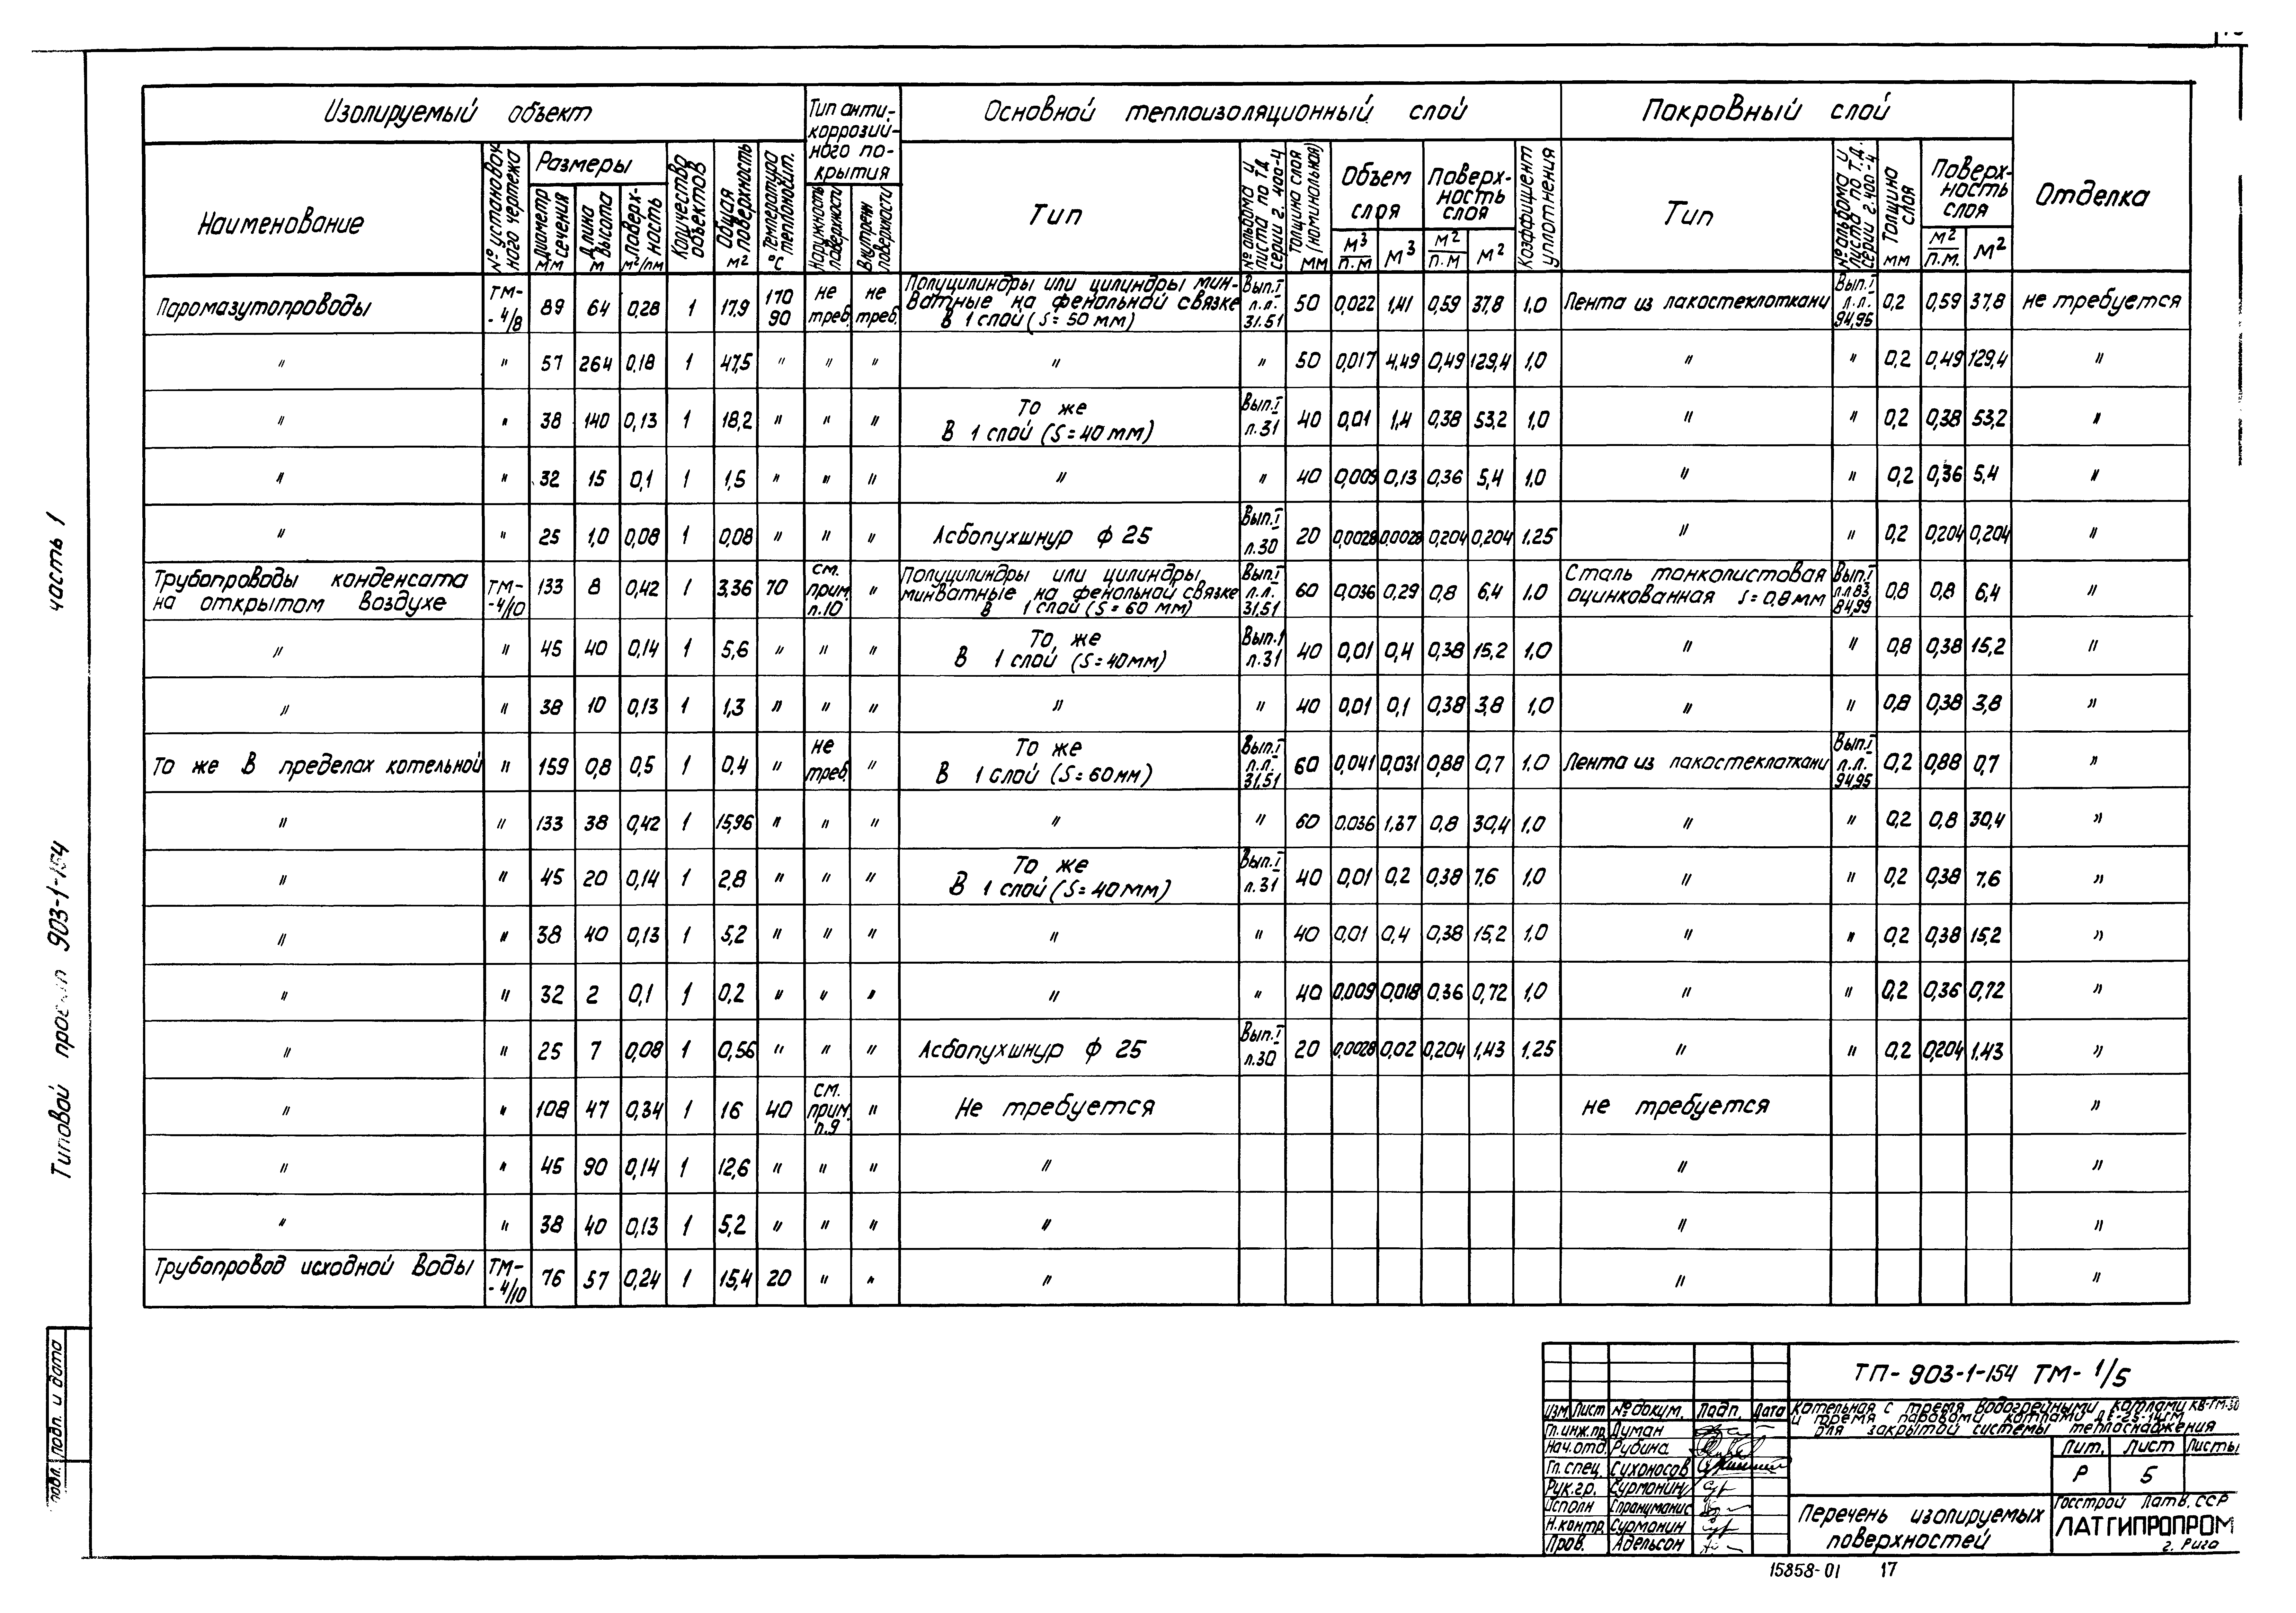 Изолируемый объект
Тип анти-
коррозий-
ного по-
крытия
Основной теплоизоляционный слой
Покровный слой
Отделка
Наименование
№ установоч-
ного чертежа
Размеры
Диаметр сечения мм
Длина высота м
Поверх-
ность м²/пм
Количество объектов
Общая поверхность м²
Температура теплоносит. °С
Наружность поверхности
Внутренн поверхности
Тип
№ альбома и листа по Т.Д. серии 2.400-4
Толщина слоя (номинальная) мм
Объем слоя
м³/п.м м³
Поверх-
ность
слоя
м²/п.м м²
Коэффициент уплотнения
Тип
№ альбома и листа по Т.Д. серии 2.400-4
Толщина слоя мм
Поверх-
ность
слоя
м²/п.м. м²
Паромазутопроводы ТМ--4/8 89 64 0,28 1 17,9 170 90 не треб. не треб. Полуцилиндры или цилиндры мин-
ватные на фенольной связке
в 1 слой (S=50 мм) Вып.I л.л. 31.51 50 0,022 1,41 0,59 37,8 1,0 Лента из лакостеклоткани Вып.I л.л. 94,95 0,2 0,59 37,8 не требуется
" " 57 264 0,18 1 47,5 " " " " " 50 0,017 4,49 0,49 129,4 1,0 " " 0,2 0,49 129,4 "
" " 38 140 0,13 1 18,2 " " " То же
в 1 слой (S=40мм) Вып.I л.31 40 0,01 1,4 0,38 53,2 1,0 " " 0,2 0,38 53,2 "
" " 32 15 0,1 1 1,5 " " " " " 40 0,009 0,13 0,36 5,4 1,0 " " 0,2 0,36 5,4 "
" " 25 1,0 0,08 1 0,08 " " " Асбопухшнур ф 25 Вып.I л.30 20 0,0028 0,0028 0,204 0,204 1.25 " " 0,2 0,204 0,204 "
Трубопроводы конденсата
на открытом воздухе ТМ--4/10 133 8 0,42 1 3,36 70 см. прим. п.10 " Полуцилиндры или цилиндры
минватные на фенольной связке
в 1 слой (S=60 мм) Вып.I л.л. 31.51 60 0,036 0,29 0,8 6,4 1,0 Сталь тонколистовая
оцинкованная S=0,8мм Вып.I л.л 83, 84,99 0,8 0,8 6,4 "
" " 45 40 0,14 1 5,6 " " " То же
в 1 слой (S=40мм) Вып.1 л.31 40 0,01 0,4 0,38 15,2 1,0 " " 0,8 0,38 15,2 "
" " 38 10 0,13 1 1,3 " " " " " 40 0,01 0,1 0,38 3,8 1,0 " " 0,8 0,38 3,8 "
То же в пределах котельной " 159 0,8 0,5 1 0,4 " не треб. " То же
в 1 слой (S=60мм) Вып.I л.л. 31.51 60 0,041 0,031 0,88 0,7 1,0 Лента из лакостеклоткани Вып.I л.л. 94,95 0,2 0,88 0,7 "
" " 133 38 0,42 1 15,96 " " " " " 60 0.036 1,37 0,8 30,4 1,0 " " 0,2 0,8 30,4 "
" " 45 20 0,14 1 2,8 " " " То же
в 1 слой (S=40мм) Вып.I л.31 40 0,01 0,2 0,38 7,6 1,0 " " 0,2 0,38 7,6 "
" " 38 40 0,13 1 5,2 " " " " " 40 0,01 0,4 0,38 15,2 1,0 " " 0,2 0,38 15,2 "
" " 32 2 0,1 1 0,2 " " " " " 40 0,009 0,018 0,36 0,72 1,0 " " 0,2 0,36 0,72 "
" " 25 7 0,08 1 0,56 " " " Асбопухшнур ф 25 Вып.I л.30 20 0,0028 0,02 0,204 1,43 1.25 " " 0,2 0,204 1,43 "
" " 108 47 0,34 1 16 40 см. прим. п.9 " Не требуется не требуется "
" " 45 90 0,14 1 12,6 " " " " " "
" " 38 40 0,13 1 5,2 " " " " " "
Трубопровод исходной воды ТМ--4/10 76 57 0,24 1 15,4 20 " " " " "
часть 1
Типовой проект 903-1-154
подп. и дата
подл.
ТП-903-1-154 ТМ-1/5
Изм. Лист № докум. Подп. Дата
Котельная с тремя водогрейными котлами КВ-ГМ-30
и тремя паровыми котлами ДЕ-25-14ГМ
для закрытой системы теплоснабжения
Гл.инж.пр. Думан
Нач.отд. Рубина
Гл.спец. Сухоносов
Рук.гр. Сурмонин
Исполн
Н.контр. Сурмонин
Пров. Адельсон
Лит. Лист Листы
Р 5
Перечень изолируемых
поверхностей
Госстрой Латв.ССР
ЛАТГИПРОПРОМ
г. Рига
15858-01 17